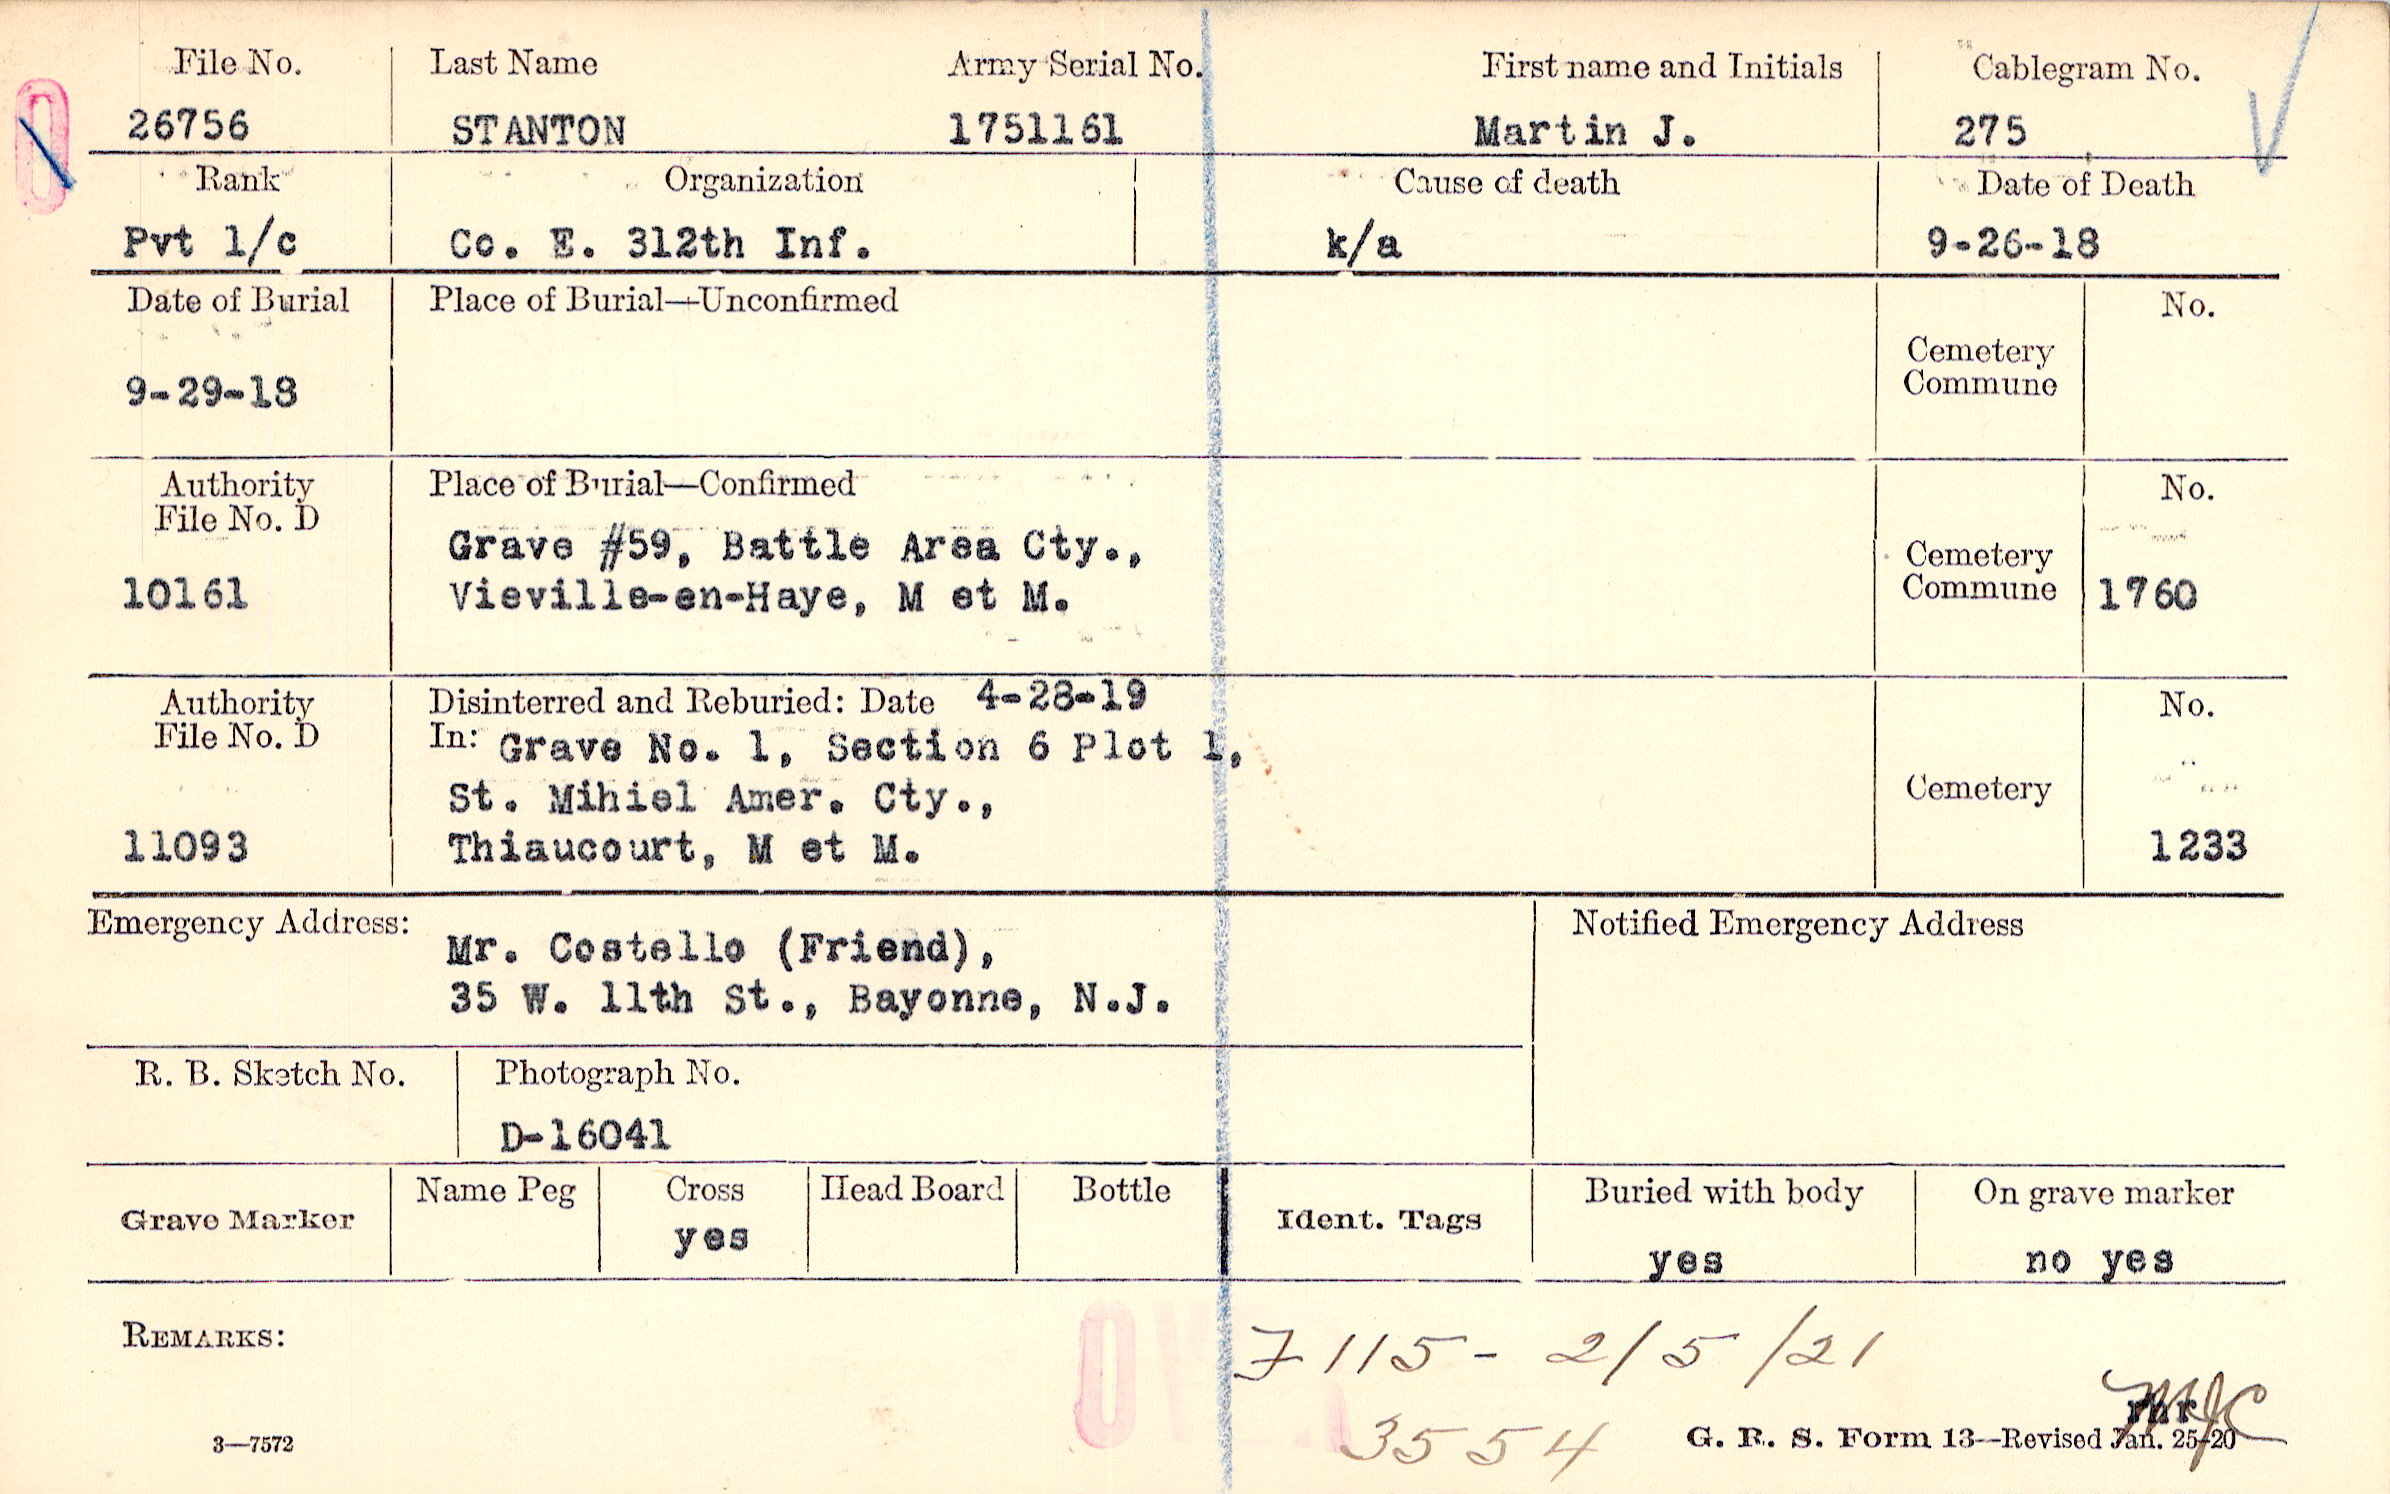 File No. Last Name Army Serial No. First name and Initials Cablegram No.
26756 STANTON 1751161 Martin J. 275
Rank Organization Cause of death Date of Death
Pvt 1/c Co. E. 312th Inf. k/a 9-26-18
Date of Burial Place of Burial—Unconfirmed No.
Cemetery
Commune
9-29-18
Authority Place of Burial—Confirmed No.
File No. D
Grave #59, Battle Area Cty., Cemetery
10161 Vieville-en-Haye, M et M. Commune 1760
Authority Disinterred and Reburied: Date 4-28-19 No.
File No. D In: Grave No. 1, Section 6 Plot 1,
St. Mihiel Amer. Cty., Cemetery
11093 Thiaucourt, M et M. 1233
Emergency Address: Notified Emergency Address
Mr. Costello (Friend),
35 W. 11th St., Bayonne, N.J.
R. B. Sketch No. Photograph No.
D-16041
Grave Marker Name Peg Cross Head Board Bottle Ident. Tags Buried with body On grave marker
yes yes no yes
REMARKS: 7115- 2/5/21
3554
3—7572 G. R. S. Form 13—Revised Jan. 25-20